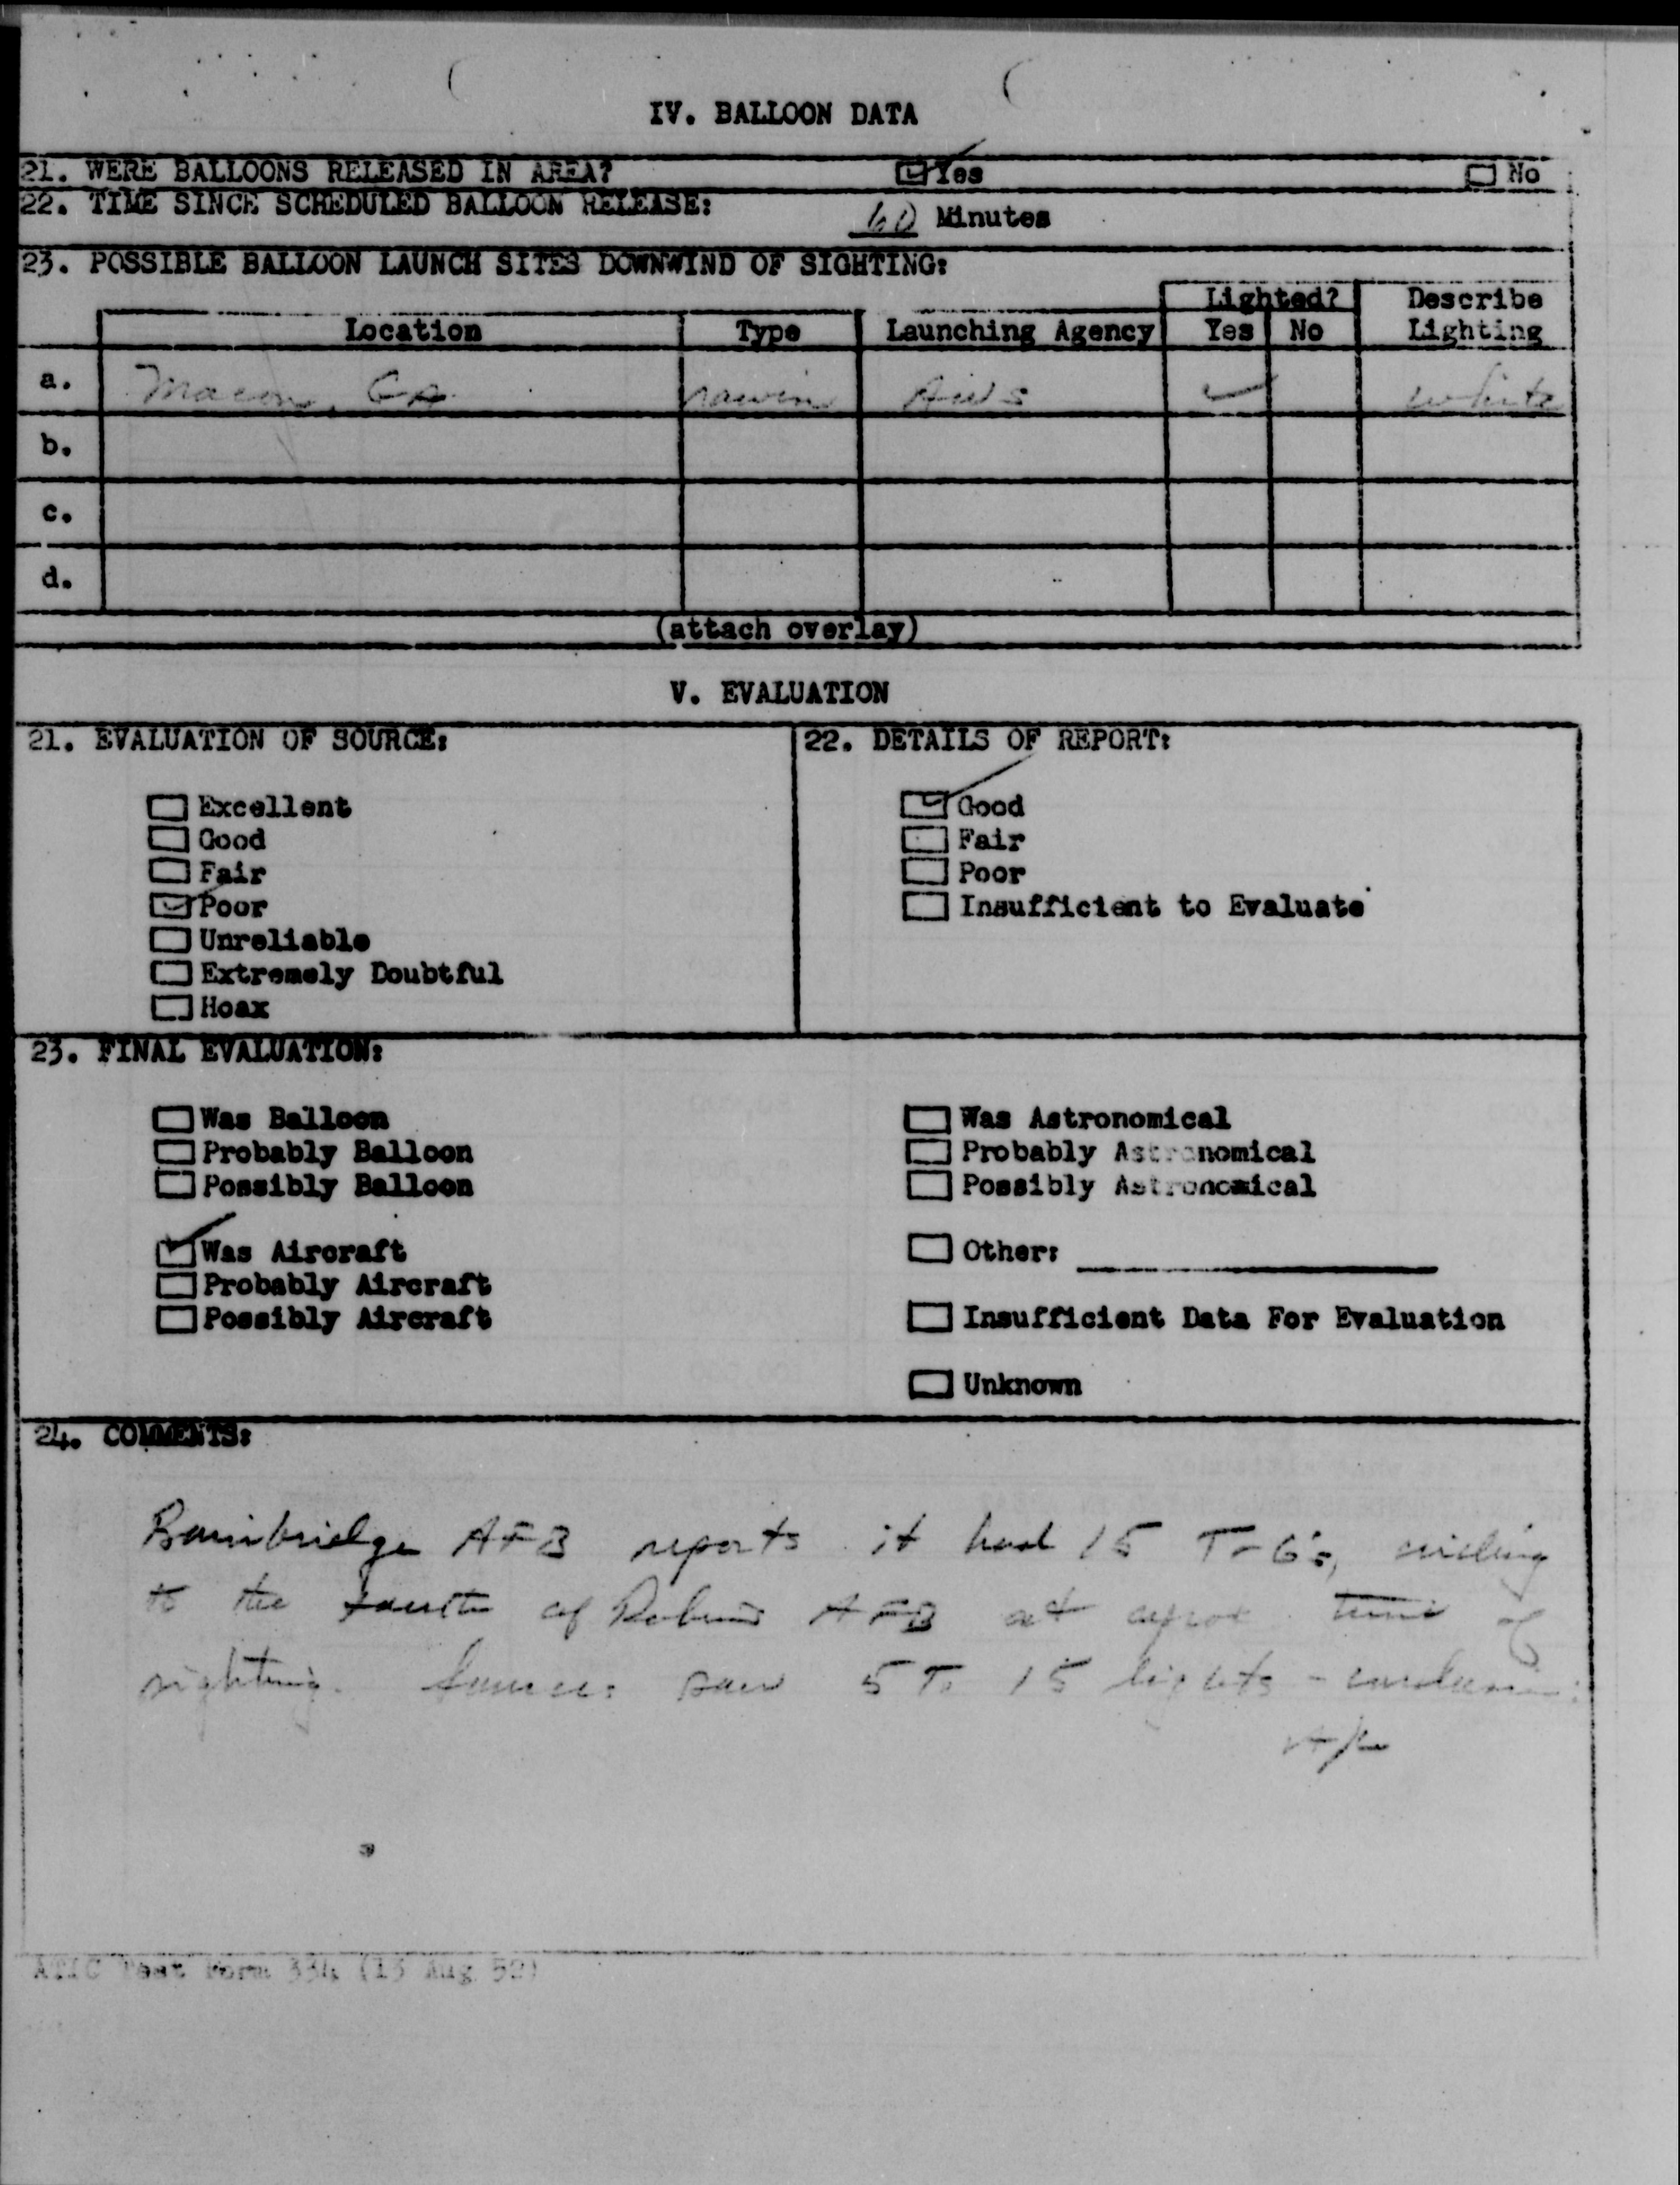 IV. BALLOON DATA
21. WERE BALLOONS RELEASED IN AREA? Yes No
22. TIME SINCE SCHEDULED BALLOON RELEASE: 60 Minutes
23. POSSIBLE BALLOON LAUNCH SITES DOWNWIND OF SIGHTING:
Lighted? Describe
Location Type Launching Agency Yes No Lighting
a. Macon, Ga. rawin AWS ✓ white
b.
c.
d.
(attach overlay)
V. EVALUATION
21. EVALUATION OF SOURCE: 22. DETAILS OF REPORT:
Excellent Good
Good Fair
Fair Poor
Poor Insufficient to Evaluate
Unreliable
Extremely Doubtful
Hoax
23. FINAL EVALUATION:
Was Balloon Was Astronomical
Probably Balloon Probably Astronomical
Possibly Balloon Possibly Astronomical
Was Aircraft Other:
Probably Aircraft
Possibly Aircraft Insufficient Data For Evaluation
Unknown
24. COMMENTS:
Bainbridge AFB reports it had 15 T-6's,
to the of Robins AFB at aprox time of
sighting. Source: saw 5 To 15 lights -
A/C
ATIC Test Form 334 (13 Aug 52)